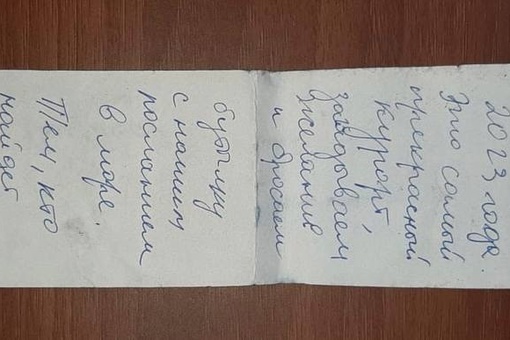 2023 года.
Это самый
прекрасный
курорт,
загадываем
желания
и бросаем
бутылку
с нашим
посланием
в море.
Тем, кто
найдёт